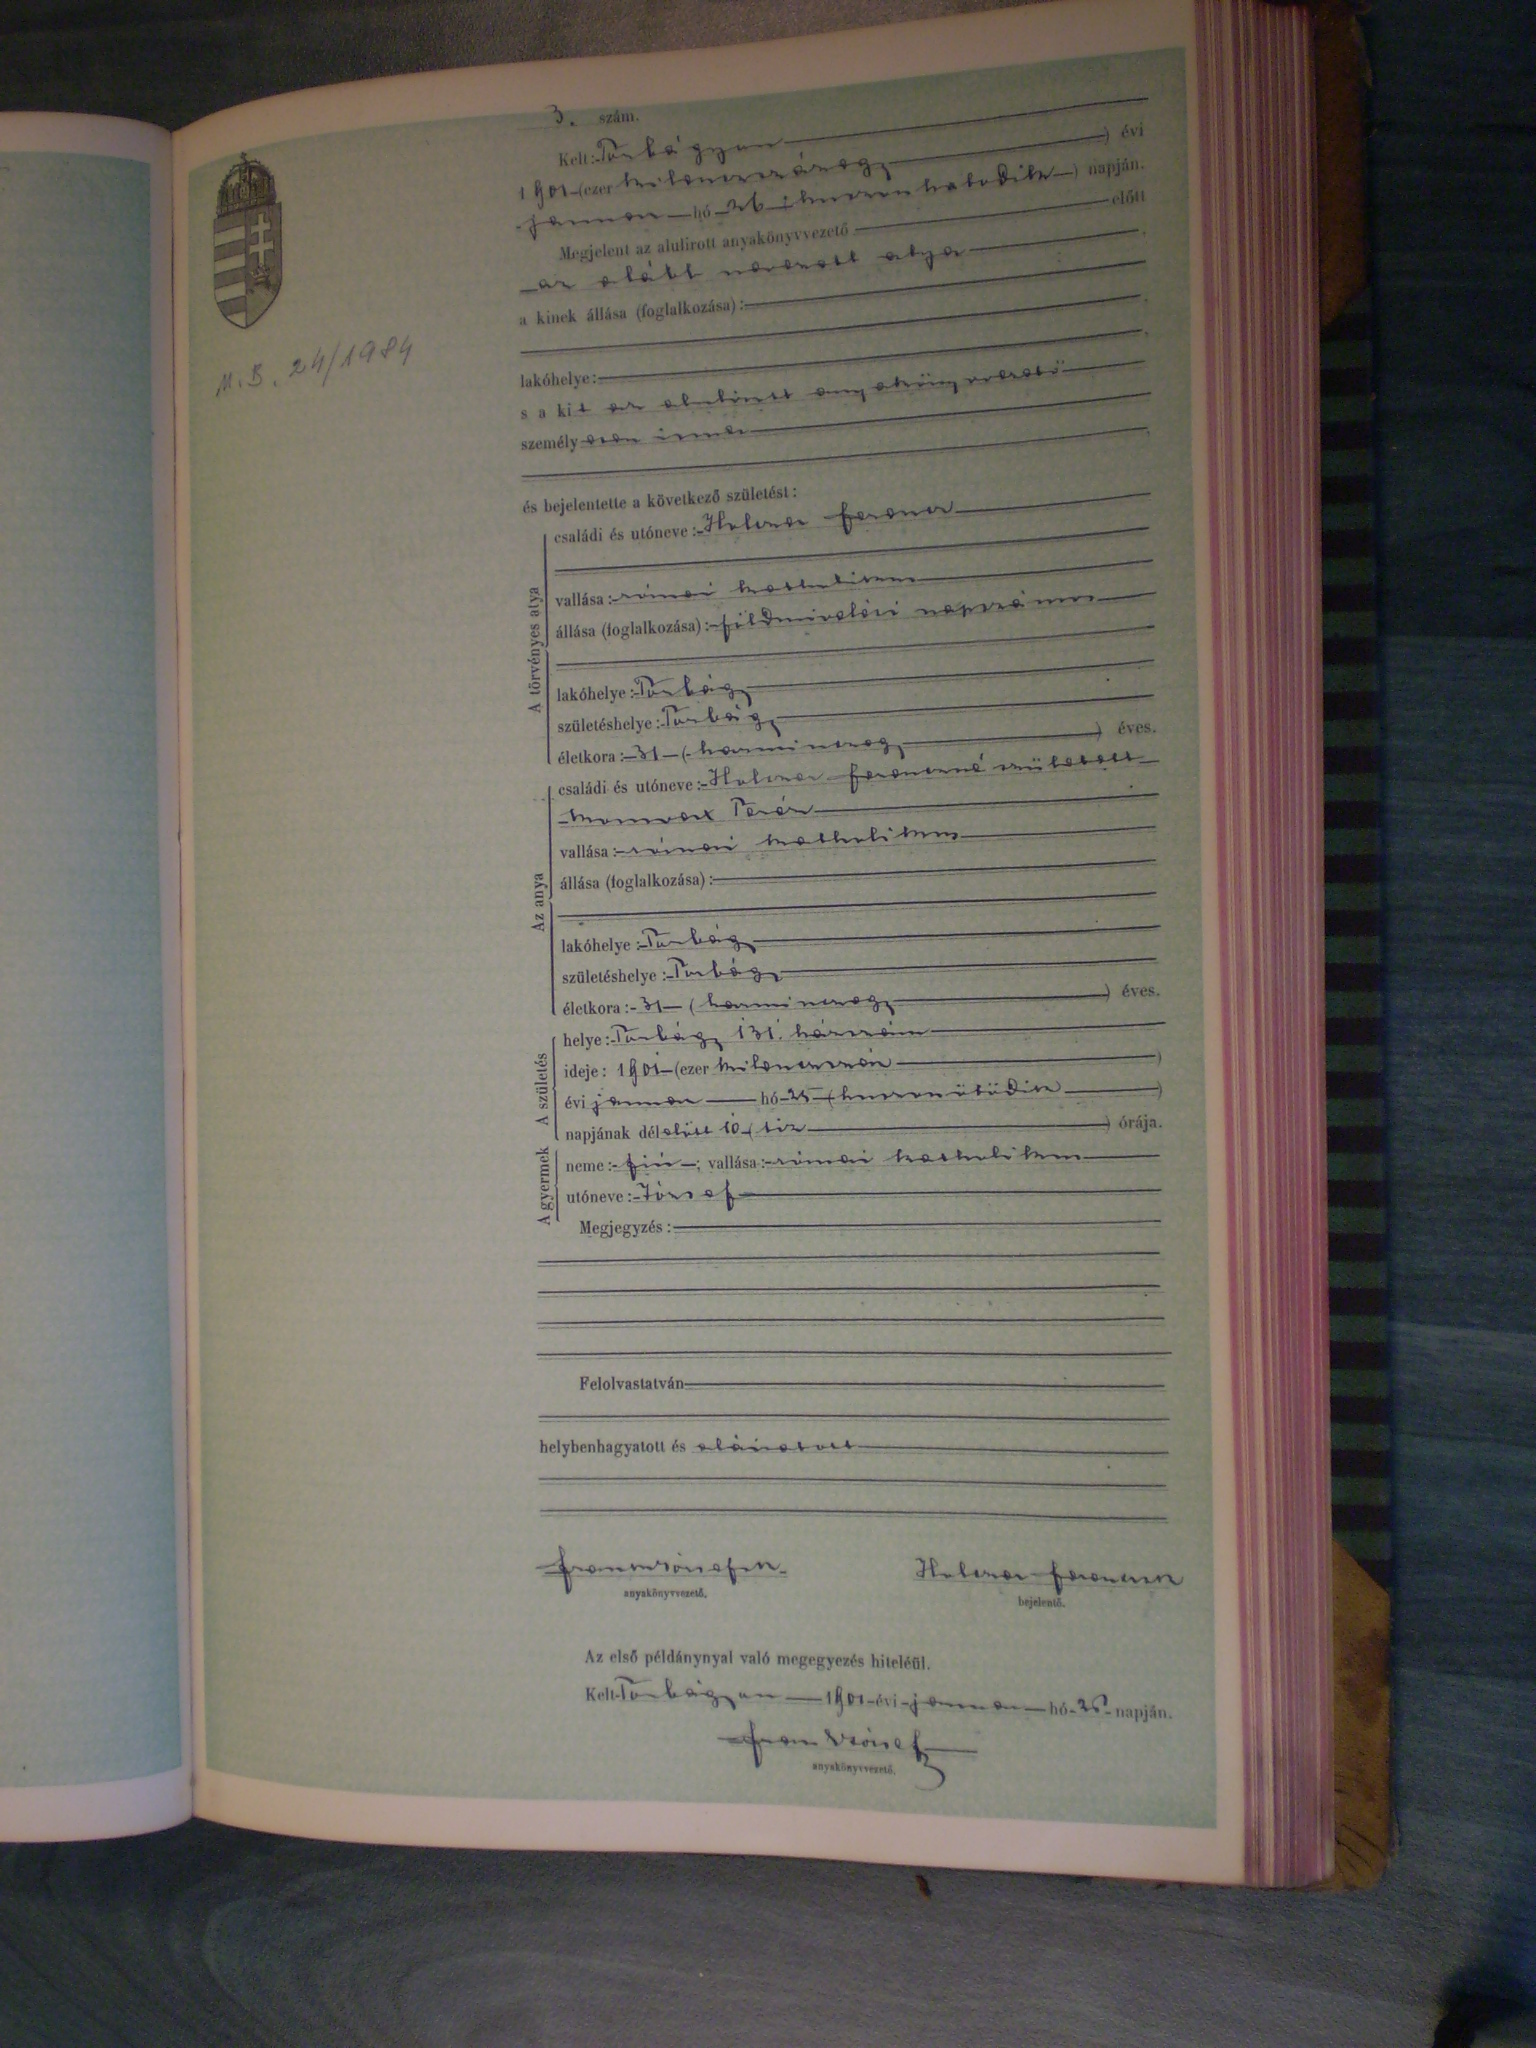 3. szám.
Kelt: Torbágyon
) évi
1901 (ezer kilencszázegy
januar hó 26 (huszonhatodik ) napján.
Megjelent az alulirott anyakönyvvezető előtt
az alább nevezett atya
a kinek állása (foglalkozása):
lakóhelye:
s a kit az alulirott anyakönyvvezető
személyesen ismer
és bejelentette a következő születést:
A törvényes atya
családi és utóneve: Holczer Ferencz
vallása: római katholikus
állása (foglalkozása): földmivelési napszámos
lakóhelye: Torbágy
születéshelye: Torbágy
életkora: 31 (harminczegy ) éves.
Az anya
családi és utóneve: Holczer Ferenczné született
Teréz
vallása: római katholikus
állása (foglalkozása):
lakóhelye: Torbágy
születéshelye: Torbágy
életkora: 31 (harminczegy ) éves.
A születés
helye: Torbágy 131. házszám
ideje: 1901 (ezer )
évi januar hó 25 (huszonötödik )
napjának délelőtt 10 (tiz ) órája.
A gyermek
neme: fiú ; vallása: római katholikus
utóneve: József
Megjegyzés:
Felolvastatván
helybenhagyatott és aláiratott
anyakönyvvezető.
Holczer Ferencz
bejelentő.
Az első példánynyal való megegyezés hiteléül.
Kelt Torbágyon 1901 évi januar hó 26 napján.
József
anyakönyvvezető.
M. B. 24/1984